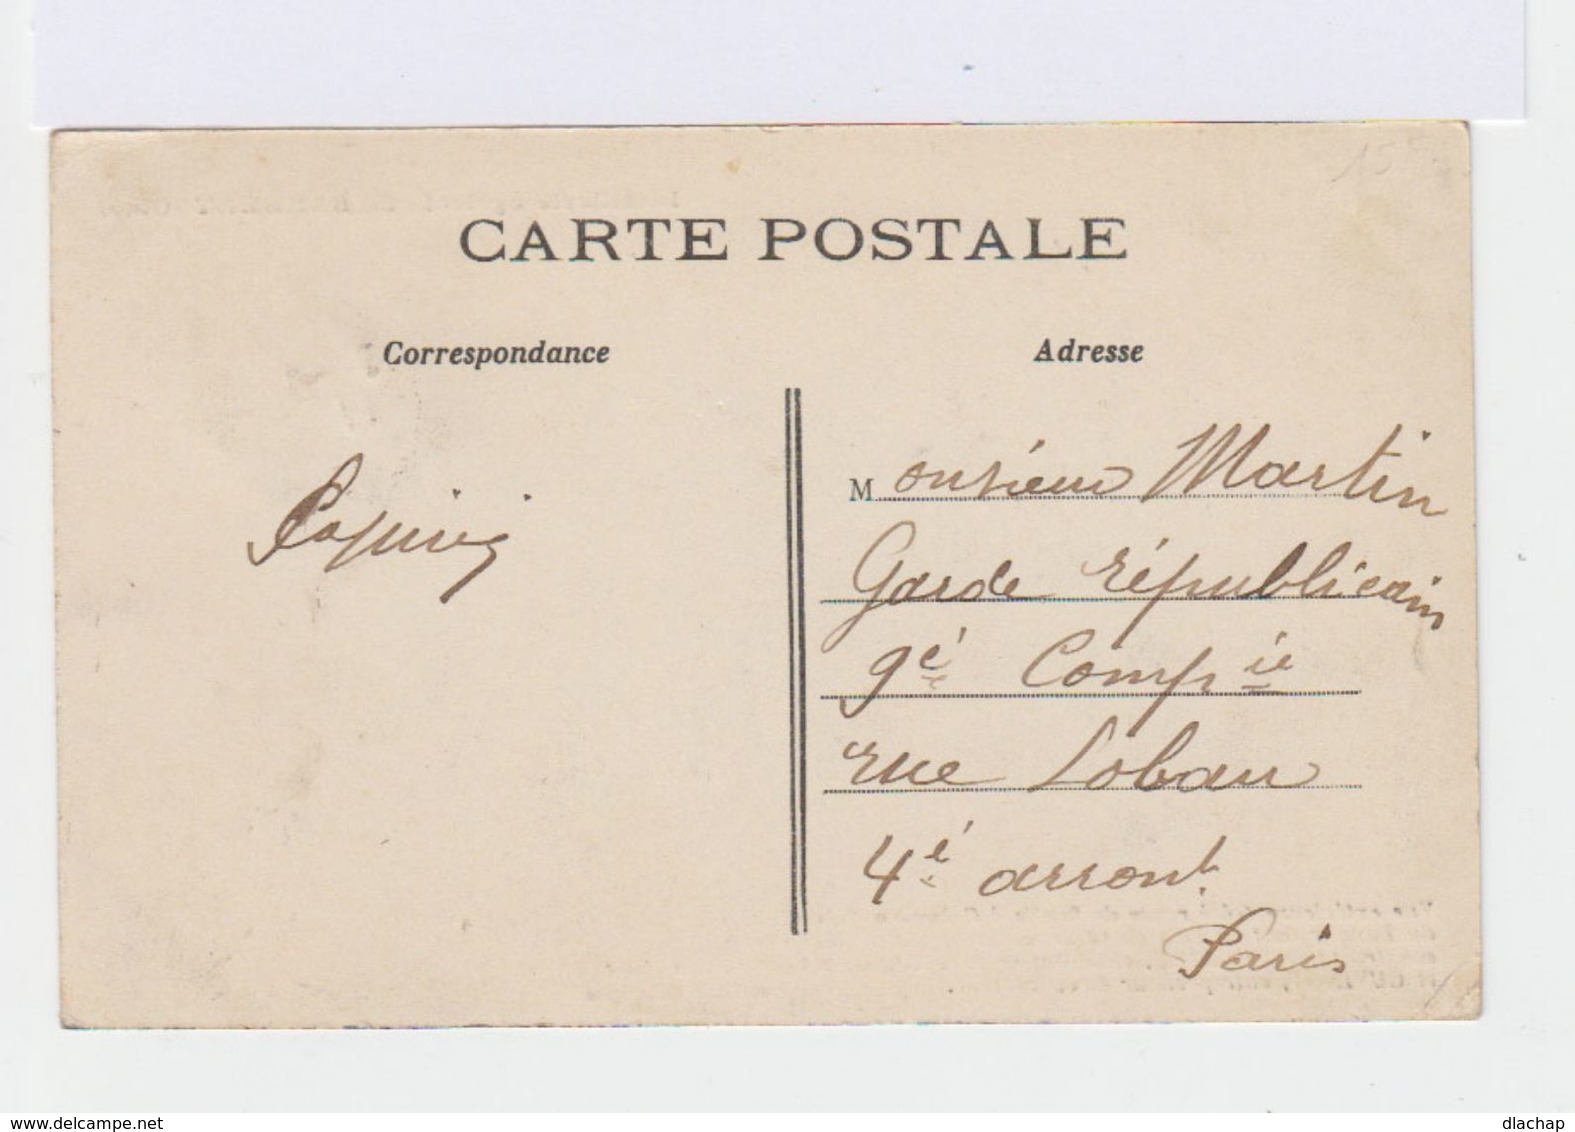 CARTE POSTALE
Correspondance
Adresse
Monsieur Martin
Garde républicain
9é Compie
rue Lobau
4é arront
Paris
delcampe.net
dlachap